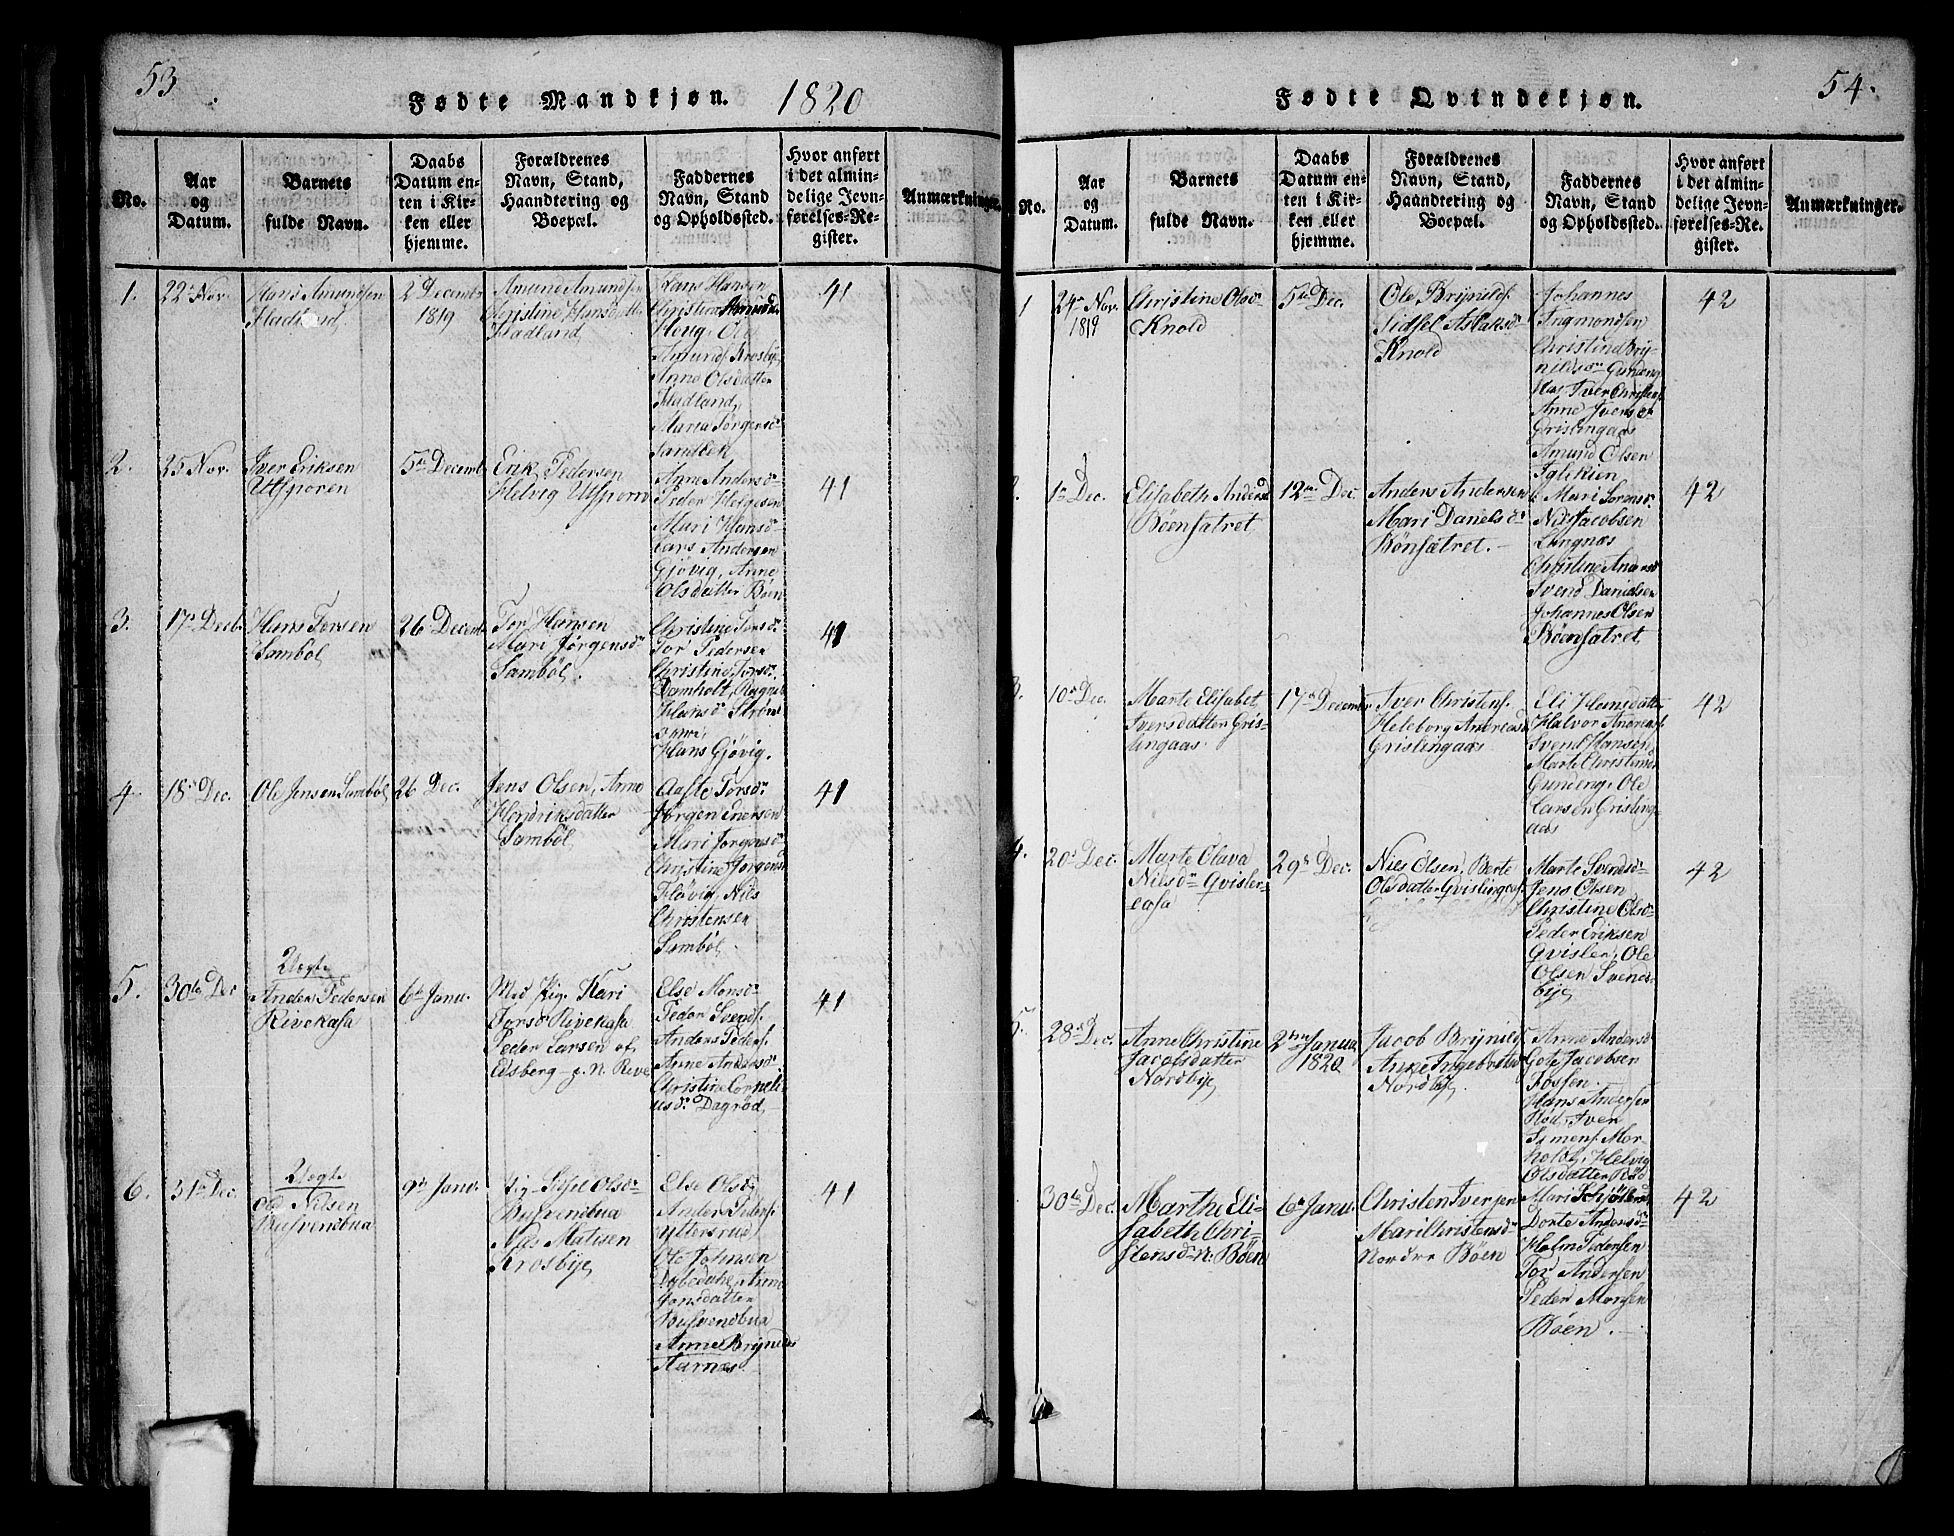 53
Fødte Mandkjøn.
1820
No.
Aar
og
Datum.
Barnets
fulde Navn.
Daabs
Datum en-
ten i Kir-
ken eller
hjemme.
Forældrenes
Navn, Stand,
Haandtering og
Boepæl.
Faddernes
Navn, Stand
og Opholdssted.
Hvor anført
i det almin-
delige Jevn-
førelses-Re-
gister.
Anmærkninger.
1.
22de Nov.
Hans Amundsen
Hadland
2 Decembr
1819
Amund Amundsen
Christine Hansdatter
Hadland
Hans Hansen
Christine
Haug, Ole
Amunds. Krosbye
Anne Olsdatter
Hadland,
Maria Jørgensdr
Sandbek
41
2.
25 Nov.
Iver Eriksen
Utsporen
5te Decemb.
Erik Pedersen
Helvig Utsporn
Anne Andersdr
Peder Helgesen
Mari Hansdr
Lars Andersen
Gjövig, Anne
Olsdatter Böen
41
3.
17de Decb.
Hans Torsen
Sambol
26 Decemb.
Tor Hansen
Mari Jörgensdr
Samböl.
Christine Torsdr
Tor Pedersen
Christine Torsdr
Hansdr
Hans Gjövig.
41
4
18de Dec.
Ole Jensen Samböl
26 Dec.
Jens Olsen, Anne
Hendriksdatter
Samböl
Aaste Torsdr
Jörgen Enersen
Mari Jörgensdr
Christine Jörgensdr
Flövig, Niels
Christensen
Samböl.
41
5.
30te Dec
Uægte
Anders Pedersen
Rivekasa
6te Janu.
Mod. Pig. Kari
Torsdr Rivekasa
Peder Larsen af
Edsberg
Else Monsdr
Peder Svends.
Anders Peders.
Anne Andersdr
Christine Corneli-
usdr Dagröd
41
6.
31te Dec.
Uægte
Ole Nilsen
Busvendbua
9de Janu.
Pig. Olsdr
Busvendbua
Niels Matisen
Krosbye
Else Olsdr
Anders Peders.
Yttersrud
Ole Johnsen
Anne
Jonsdatter
Busvendbua
Anne Brynildsdr
Aarnes
41
54.
Fødte Qvindekjøn.
No.
Aar
og
Datum.
Barnets
fulde Navn.
Daabs
Datum en-
ten i Kir-
ken eller
hjemme.
Forældrenes
Navn, Stand,
Haandtering og
Boepæl.
Faddernes
Navn, Stand
og Opholdssted.
Hvor anført
i det almin-
delige Jevn-
førelses-Re-
gister.
Anmærkninger.
1
24de Nov.
1819
Christine Olsdr
Knold
5te Dec.
Ole Brynilds.
Sidsel Aslaksdr
Knold
Johannes
Ingmondsen
Christine Bry-
nildsdr Gundeng
Iver Christens.
Anne Iversdr
Grislingaas
Amund Olsen
42
2.
1te Dec.
Elisabeth Andersd
Böensætret
12te Dec.
Anders Andersen
Mari Danelsdr
Bönsætret.
Mari Sörensdr
Niels Jacobsen
Lingnæs
Christine Andersdr
Svend Danielsen
Johannes Olsen
Böensætret
42
3.
10de Dec.
Marte Elisabet
Iversdatter Gris-
lingaas
17de Decembr
Iver Christens.
Heleborg Andreasd
Grislingaas
Eli Hansdatter
Halvor Andreas.
Svend Hansen
Marte Christensd
Gundeng, Ole
Larsen Grisling-
aas
42
4.
20de Dec.
Marte Olava
Nielsdr Gvisler-
casa
29de Dec.
Niels Olsen. Berte
Olsdatter
Marte Svendsdr
Jens Olsen
Christine Olsdr
Peder Eriksen
Gvisler, Ole
Olsen Svends-
bye
42
5.
28de Dec.
Anne Christine
Jacobsdatter
Nordbye
2den Janua
1820
Jacob Brynilds.
Anne Ingebretsd
Nordbye
Anne Andersd
Gote Jacobsen
Fossen
Hans Andersen
Röd, Iver
Simens. Mor-
Helvig
Olsdatter Röd
30te Dec.
Marthe Eli-
sabeth Chri-
stensdr n. Böen
6te Janu.
Christen Iversen
Mari Christensdr
Nordre Böen
Mari
Dorte Andersdr
Holm Pedersen
Tor Andersen
Peder Monsen
Böen.
42